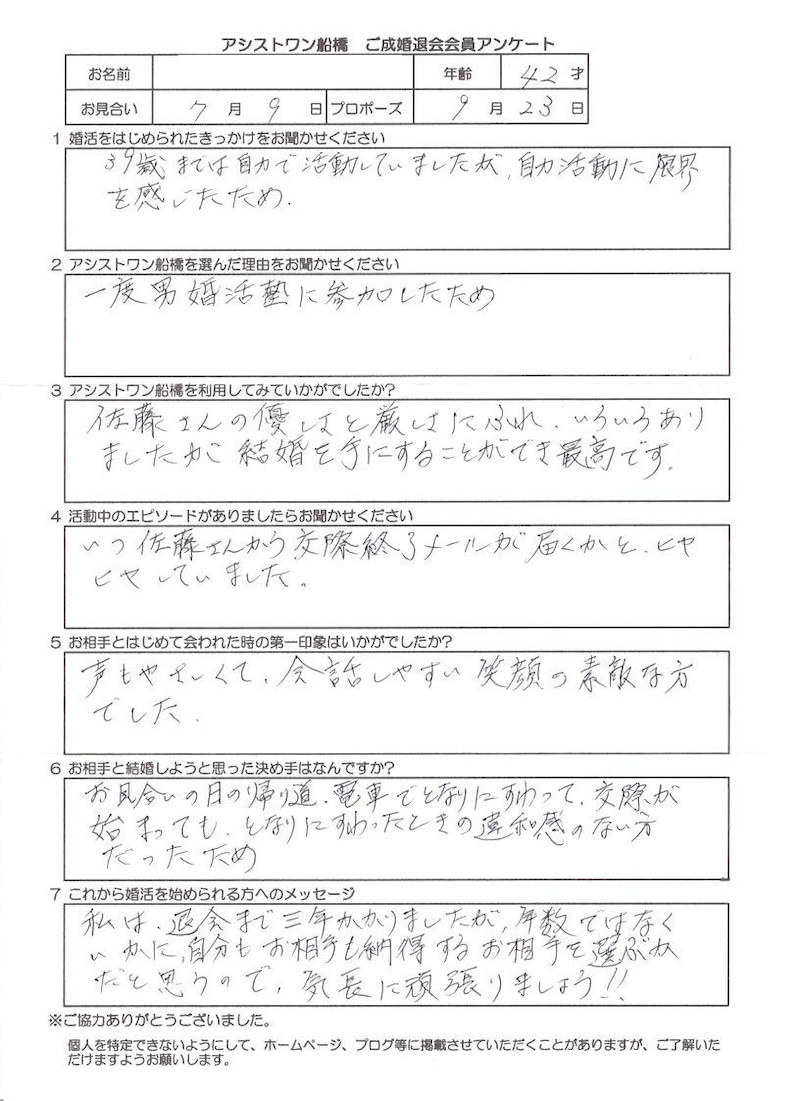 アシストワン船橋　ご成婚退会会員アンケート
お名前 年齢 42 才
お見合い 7 月 9 日 プロポーズ 9 月 23 日
1 婚活をはじめられたきっかけをお聞かせください
39歳までは自力で活動していましたが、自力活動に限界
を感じたため.
2 アシストワン船橋を選んだ理由をお聞かせください
一度男婚活塾に参加したため
3 アシストワン船橋を利用してみていかがでしたか?
佐藤さんの優しさと厳しさにふれ、いろいろあり
ましたが 結婚を手にすることができ最高です.
4 活動中のエピソードがありましたらお聞かせください
いつ佐藤さんから交際終了メールが届くかと、ヒヤ
ヒヤしていました。
5 お相手とはじめて会われた時の第一印象はいかがでしたか?
声もやさしくて、会話しやすい笑顔の素敵な方
でした.
6 お相手と結婚しようと思った決め手はなんですか?
お見合いの日の帰り道、電車でとなりにすわって、交際が
始まっても、となりにすわったときの違和感のない方
だったため
7 これから婚活を始められる方へのメッセージ
私は、退会まで三年かかりましたが、年数ではなく
いかに、自分もお相手も納得するお相手を選ぶか
だと思うので、気長に頑張りましょう!!
※ご協力ありがとうございました。
個人を特定できないようにして、ホームページ、ブログ等に掲載させていただくことがありますが、ご了解いた
だけますようお願いします。